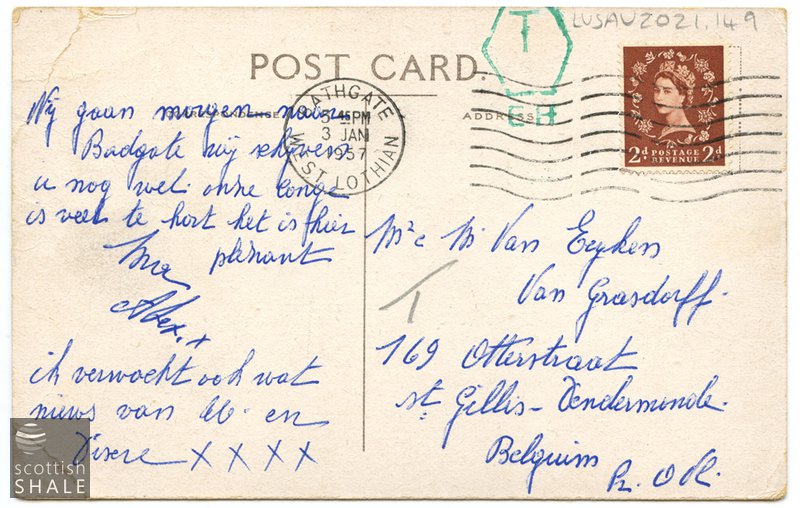 LUSAV2021.149
T
POST CARD.
CORRESPONDENCE
ADDRESS
EH
BATHGATE
5 45PM
3 JAN
1957
WEST LOTHIAN
2d POSTAGE 2d
REVENUE
Wij gaan morgen naar
Badgate wij schrijven
u nog wel. onze longe
is veel te kort het is hier
plezant
Ma
Alex. x
ik verwacht ook wat
nieuws van U. en
Désiré X X X X
Mᶜ Van Eeyken
Van Grasdorff.
169 Otterstraat
St Gillis-Dendermonde.
Belguim
T
scottish
SHALE